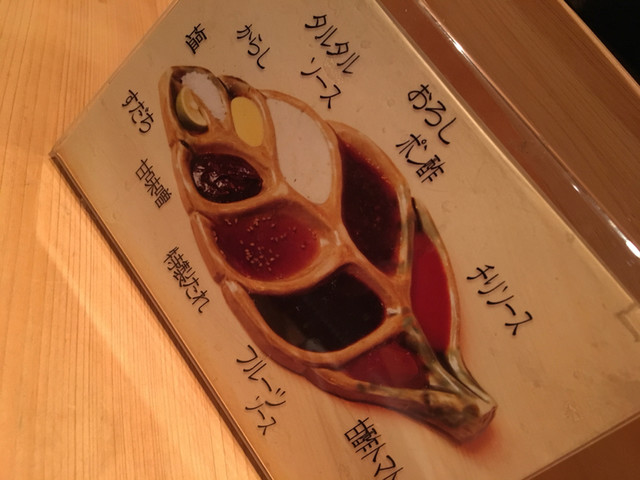 塩
からし
タルタル
ソース
おろし
ポン酢
すだち
甘味噌
特製たれ
チリソース
フルーツ
ソース